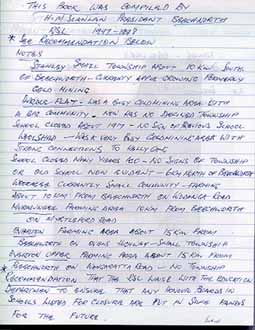 THIS BOOK WAS COMPILED BY
H.M. SCANLAN PRESIDENT BEECHWORTH
RSL 1997-1998
* SEE RECOMMENDATION BELOW
NOTES
STANLEY SMALL TOWNSHIP ABOUT 10 KM SOUTH
OF BEECHWORTH - CURRENTLY APPLE GROWING FORMERLY
GOLD MINING
- WAS A BUSY GOLDMINING AREA WITH
A BIG COMMUNITY - NOW HAS NO DEFINED TOWNSHIP
SCHOOL CLOSED ABOUT 1977 - NO SIGN OF PREVIOUS SCHOOL
WOOLSHED - WAS A VERY BUSY GOLDMINING AREA WITH
STRONG CONNECTIONS TO KELLY GANG
SCHOOL CLOSED MANY YEARS AGO - NO SIGNS OF TOWNSHIP
OR OLD SCHOOL NOW EVIDENT - 6KM NORTH OF BEECHWORTH
WOORAGEE CURRENTLY SMALL COMMUNITY - FARMING
ABOUT 10 KM FROM BEECHWORTH ON WODONGA ROAD
MURMUNGEE FARMING AREA 10KM FROM BEECHWORTH
ON MYRTLEFORD ROAD
EVERTON FARMING AREA ABOUT 15 KM FROM
BEECHWORTH ON OVENS HIGHWAY - SMALL TOWNSHIP
EVERTON UPPER FARMING AREA ABOUT 15 KM FROM
BEECHWORTH ON WANGARATTA ROAD - NO TOWNSHIP
* RECOMMENDATION THAT THE RSL LIAISE WITH THE EDUCATION
DEPARTMENT TO ENSURE THAT ANY HONOUR BOARDS IN
SCHOOLS LISTED FOR CLOSURE ARE PUT IN SAFE HANDS
FOR THE FUTURE